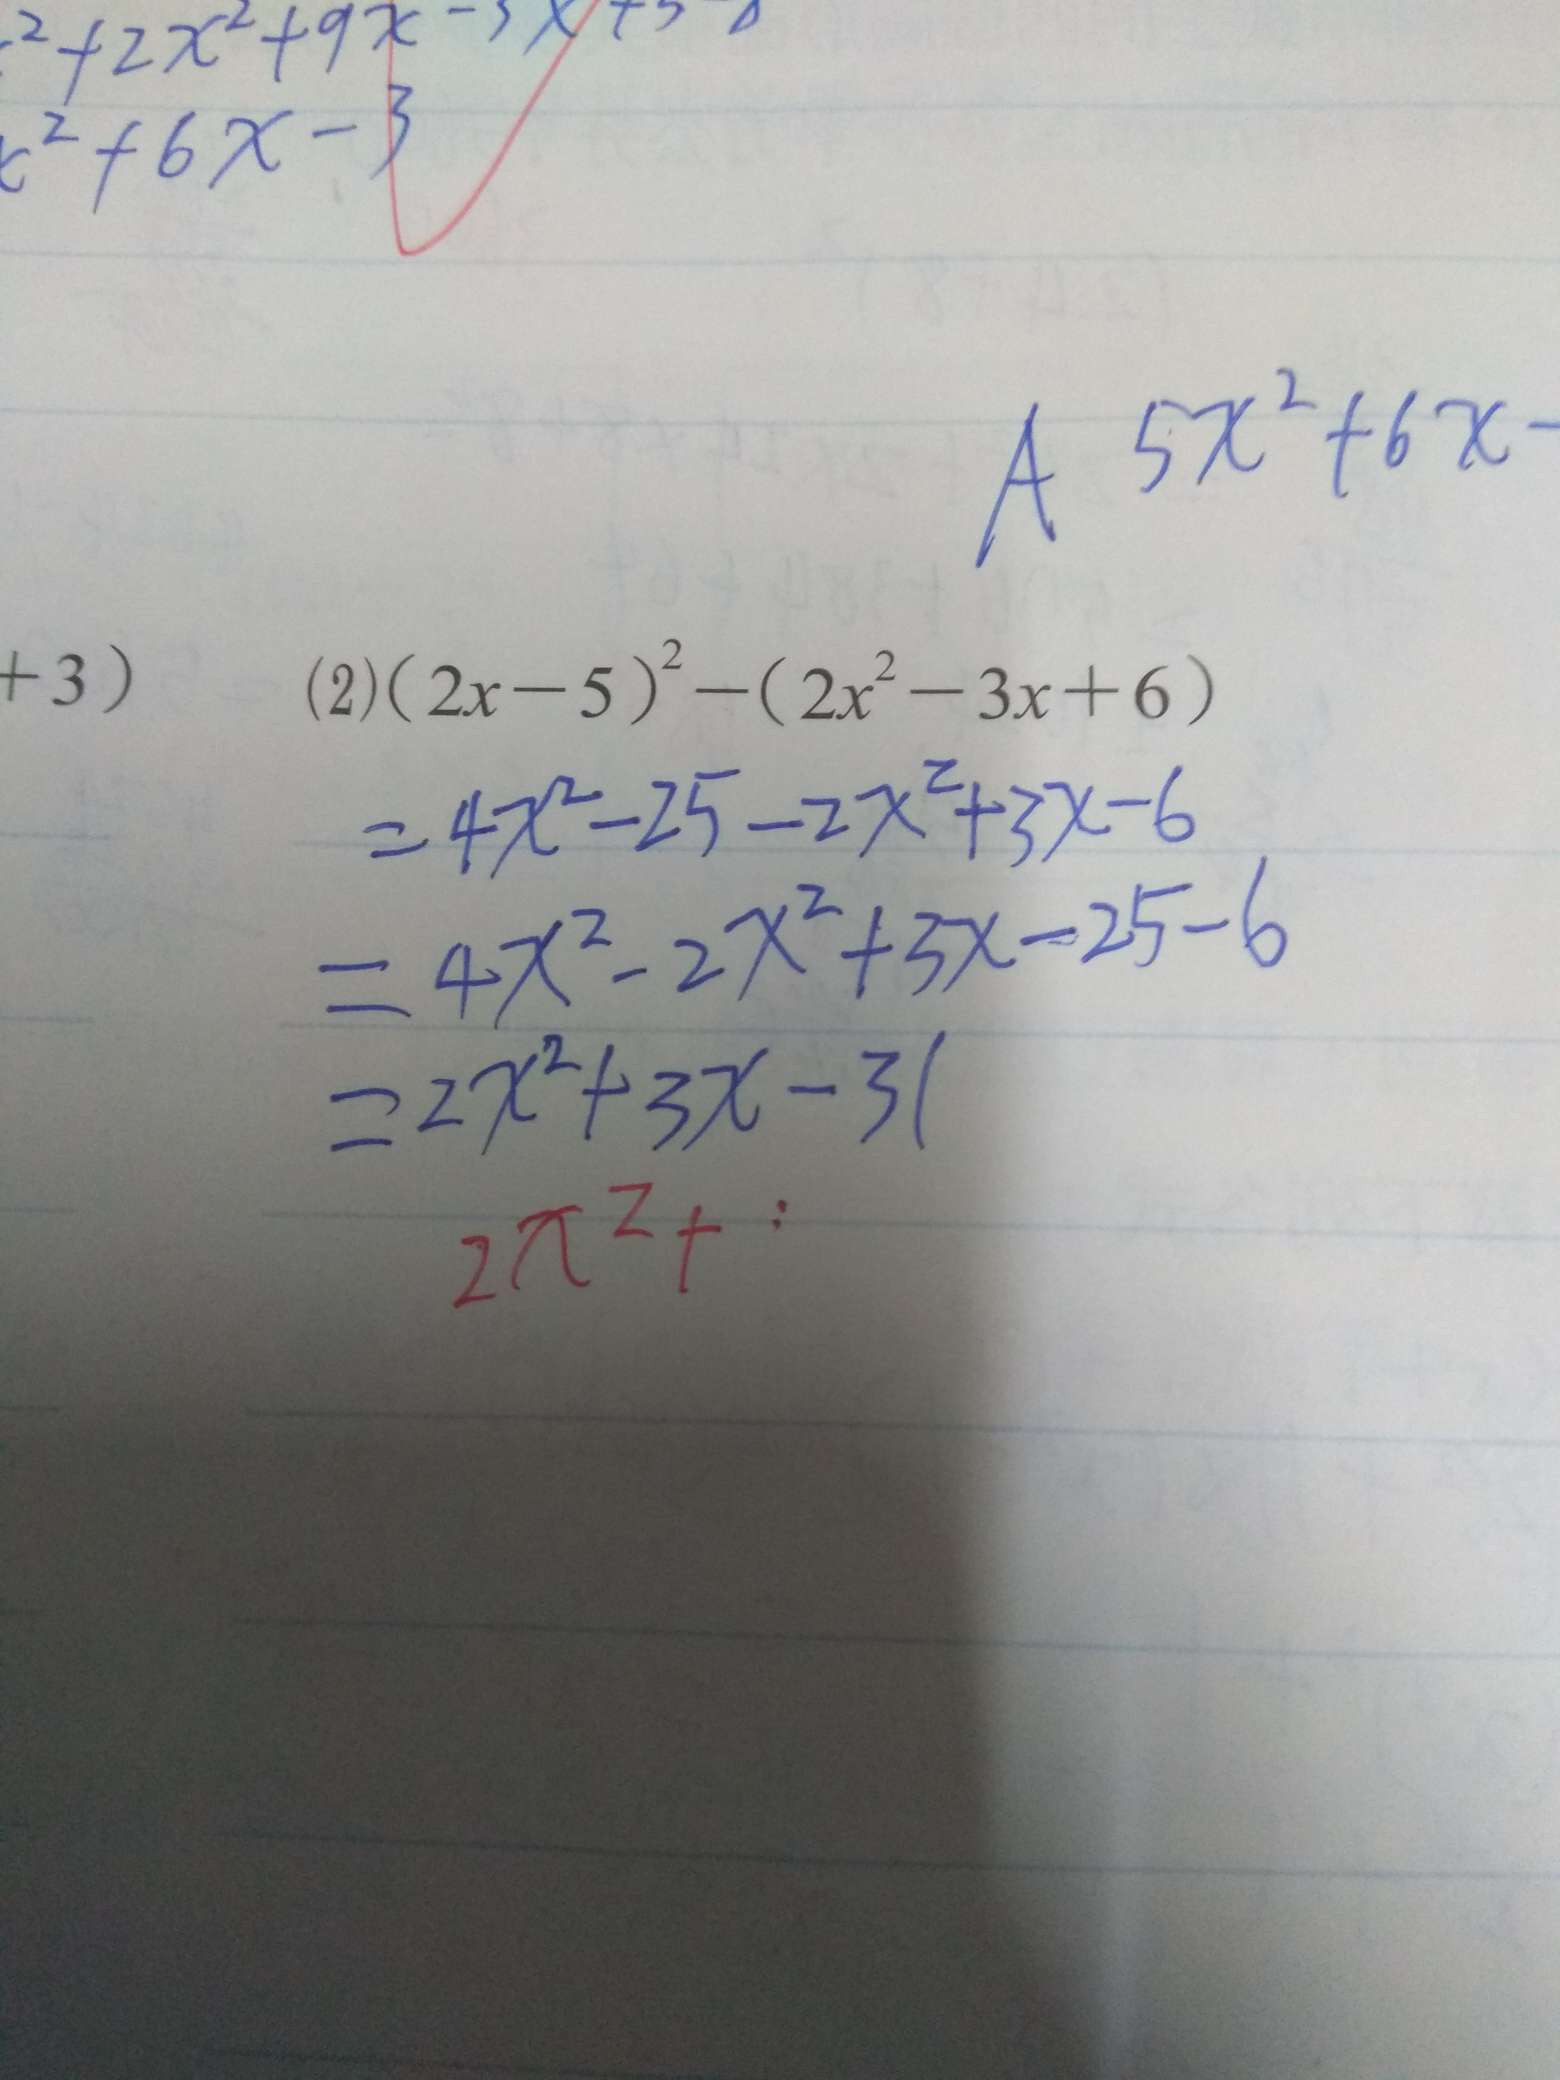 ²+2x²+9x-3x+3-6
x²+6x-3
A 5x²+6x-
+3) (2)(2x-5)²-(2x²-3x+6)
=4x²-25-2x²+3x-6
=4x²-2x²+3x-25-6
=2x²+3x-31
2x²+